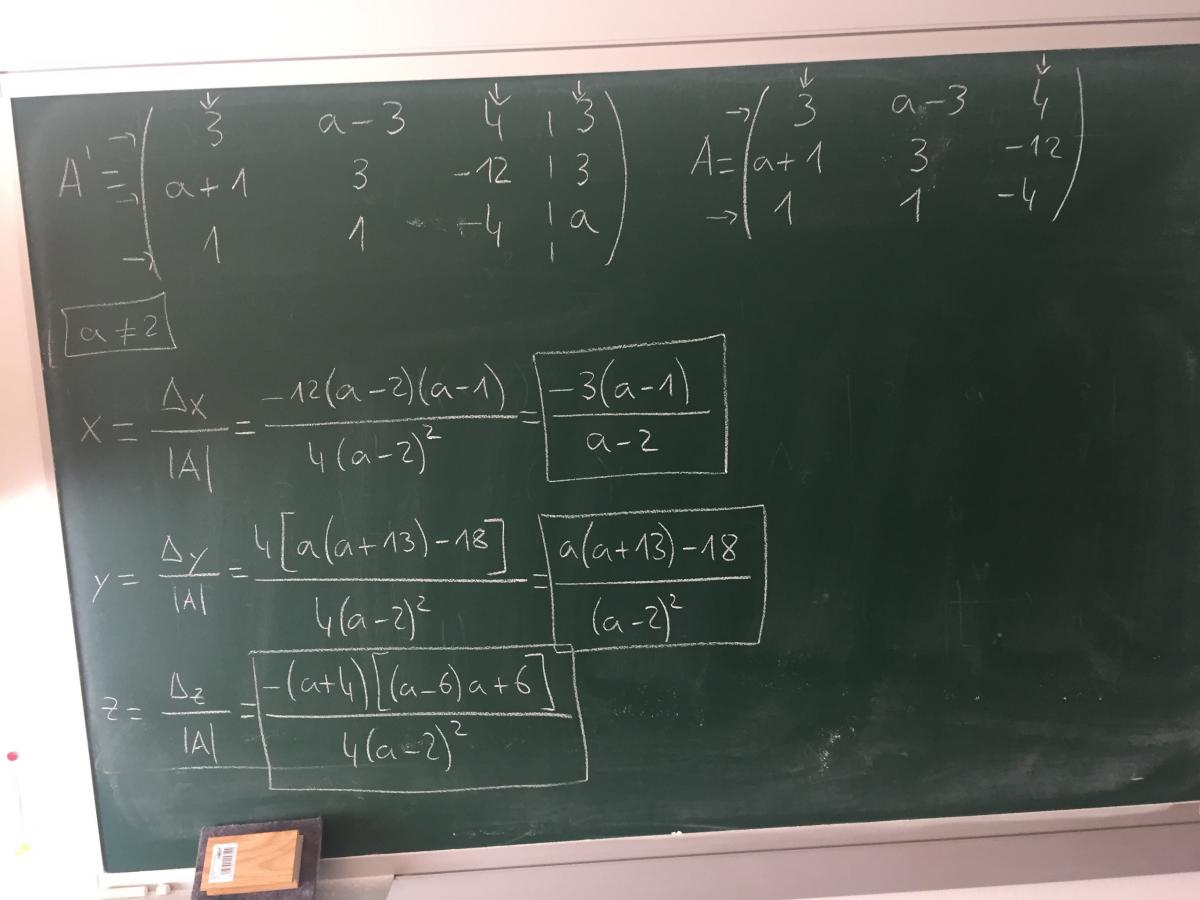 A' = ( 3 a-3 4 | 3 )
( a+1 3 -12 | 3 )
( 1 1 -4 | a )
A = ( 3 a-3 4 )
( a+1 3 -12 )
( 1 1 -4 )
a ≠ 2
x = Δx/|A| = -12(a-2)(a-1)/4(a-2)² = -3(a-1)/a-2
y = Δy/|A| = 4[a(a+13)-18]/4(a-2)² = a(a+13)-18/(a-2)²
z = Δz/|A| = -(a+4)[(a-6)a+6]/4(a-2)²